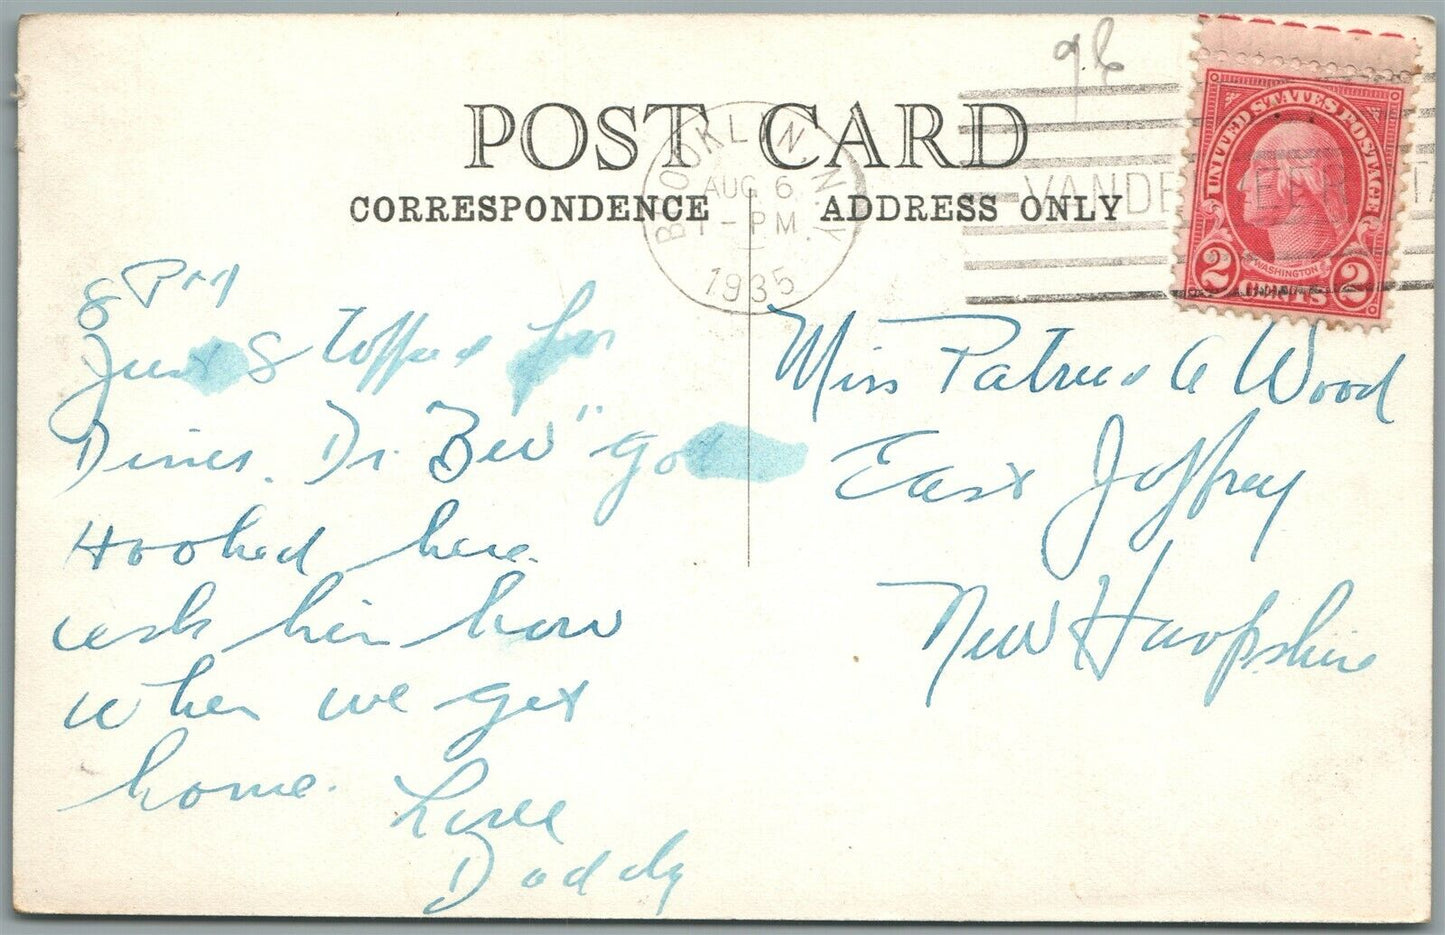 96
POST CARD
CORRESPONDENCE ADDRESS ONLY
BROOKLYN, N.Y.
AUG 6
1-PM
1935
VANDE
UNITED STATES POSTAGE
WASHINGTON
2 CENTS 2
8 PM
Just Stopped for
Dinner. Dr. Bew" got
Hooked here.
ask him how
when we get
home.
Love
Daddy
Miss Patricia A Wood
East Jaffrey
New Hampshire